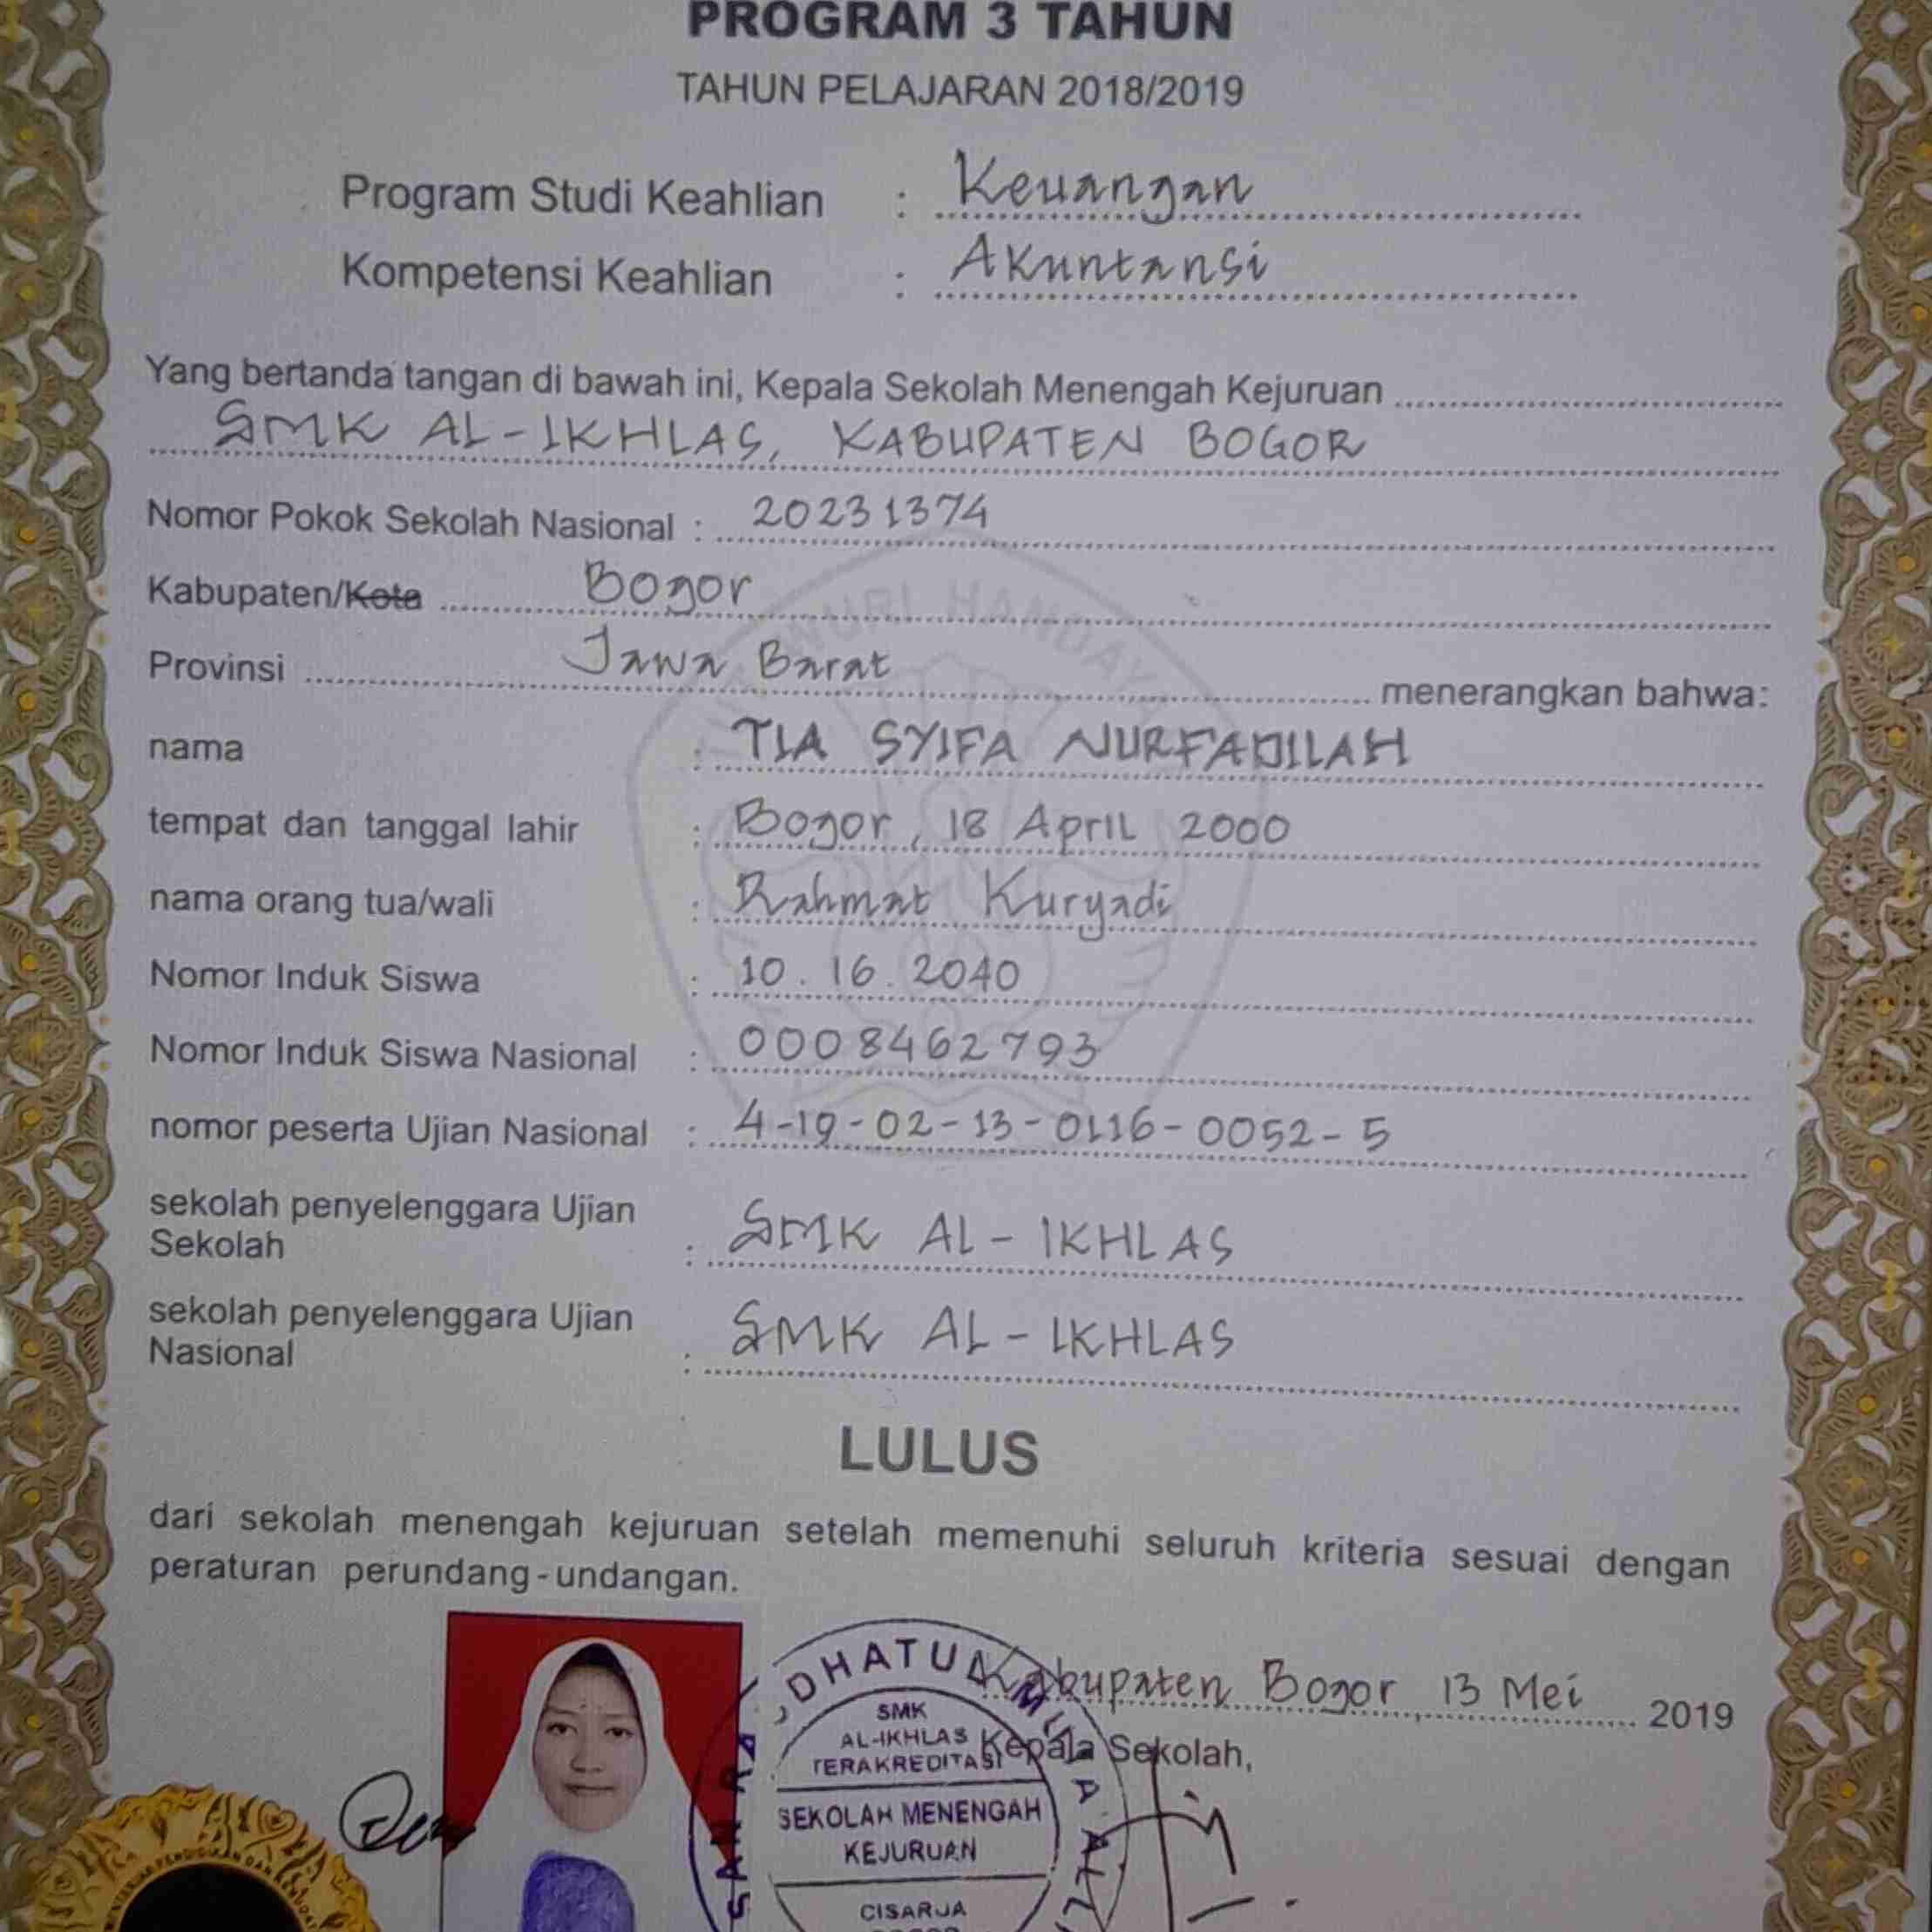 PROGRAM 3 TAHUN
TAHUN PELAJARAN 2018/2019
Program Studi Keahlian : Keuangan
Kompetensi Keahlian : Akuntansi
Yang bertanda tangan di bawah ini, Kepala Sekolah Menengah Kejuruan
SMK AL-IKHLAS, KABUPATEN BOGOR
Nomor Pokok Sekolah Nasional : 20231374
Kabupaten/Kota Bogor
Provinsi Jawa Barat menerangkan bahwa:
nama : TIA SYIFA NURFADILAH
tempat dan tanggal lahir : Bogor, 18 April 2000
nama orang tua/wali : Rahmat Kuryadi
Nomor Induk Siswa : 10.16.2040
Nomor Induk Siswa Nasional : 0008462793
nomor peserta Ujian Nasional : 4-19-02-13-0116-0052-5
sekolah penyelenggara Ujian
Sekolah : SMK AL-IKHLAS
sekolah penyelenggara Ujian
Nasional : SMK AL-IKHLAS
LULUS
dari sekolah menengah kejuruan setelah memenuhi seluruh kriteria sesuai dengan
peraturan perundang-undangan.
Kabupaten Bogor 13 Mei 2019
Kepala Sekolah,
SMK
AL-IKHLAS
TERAKREDITASI
SEKOLAH MENENGAH
KEJURUAN
CISARUA